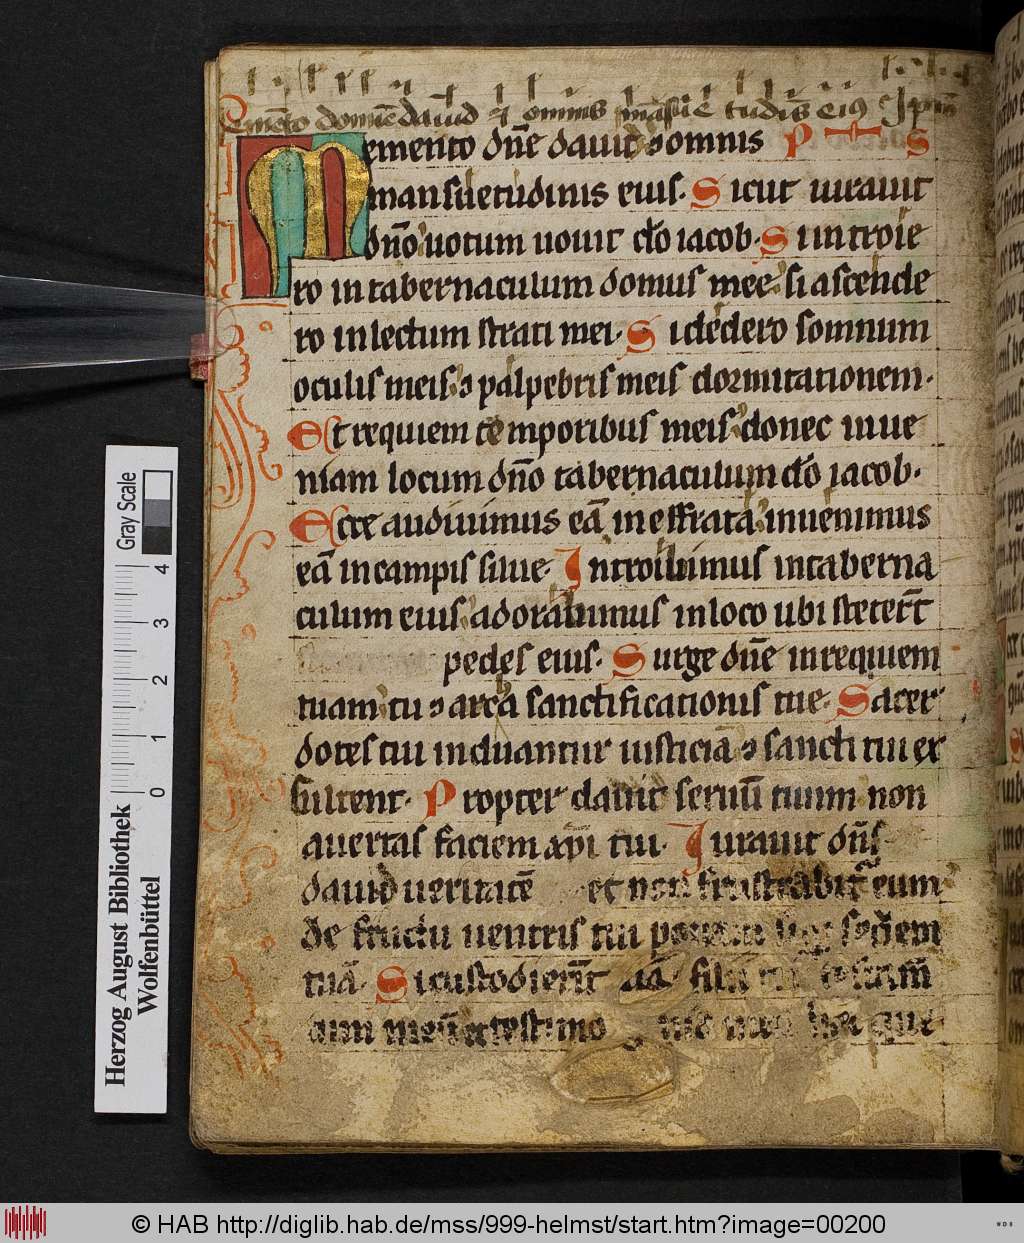 Memento domine dauid et omnis mansue tudis eius Ips
Memento dn̄e dauid ⁊ omnis P S
mansuetudinis eius. Sicut iurauit
dn̄o uotum uouit d̄o iacob. Si introie
ro in tabernaculum domus mee si ascende
ro in lectum strati mei. Si dedero somnum
oculis meis ⁊ palpebris meis dormitationem.
Et requiem temporibus meis donec inue
niam locum dn̄o tabernaculum d̄o iacob.
Ecce audiuimus eā in effrata inuenimus
eā in campis silue. Introibimus in taberna
culum eius adorabimus in loco ubi steterūt
pedes eius. Surge dn̄e in requiem
tuam tu ⁊ arca sanctificationis tue. Sacer
dotes tui induantur iusticiā ⁊ sancti tui ex
sultent. Propter dauid seruū tuum non
auertas faciem xp̄i tui. Iurauit dn̄s
dauid ueritatē et non frustrabit̄ eum
de fructu uentris tui sedem
tuā. Si custodierīt filii
tum meū et testimo hec que
Herzog August Bibliothek
Wolfenbüttel
Gray Scale
0 1 2 3 4
© HAB http://diglib.hab.de/mss/999-helmst/start.htm?image=00200